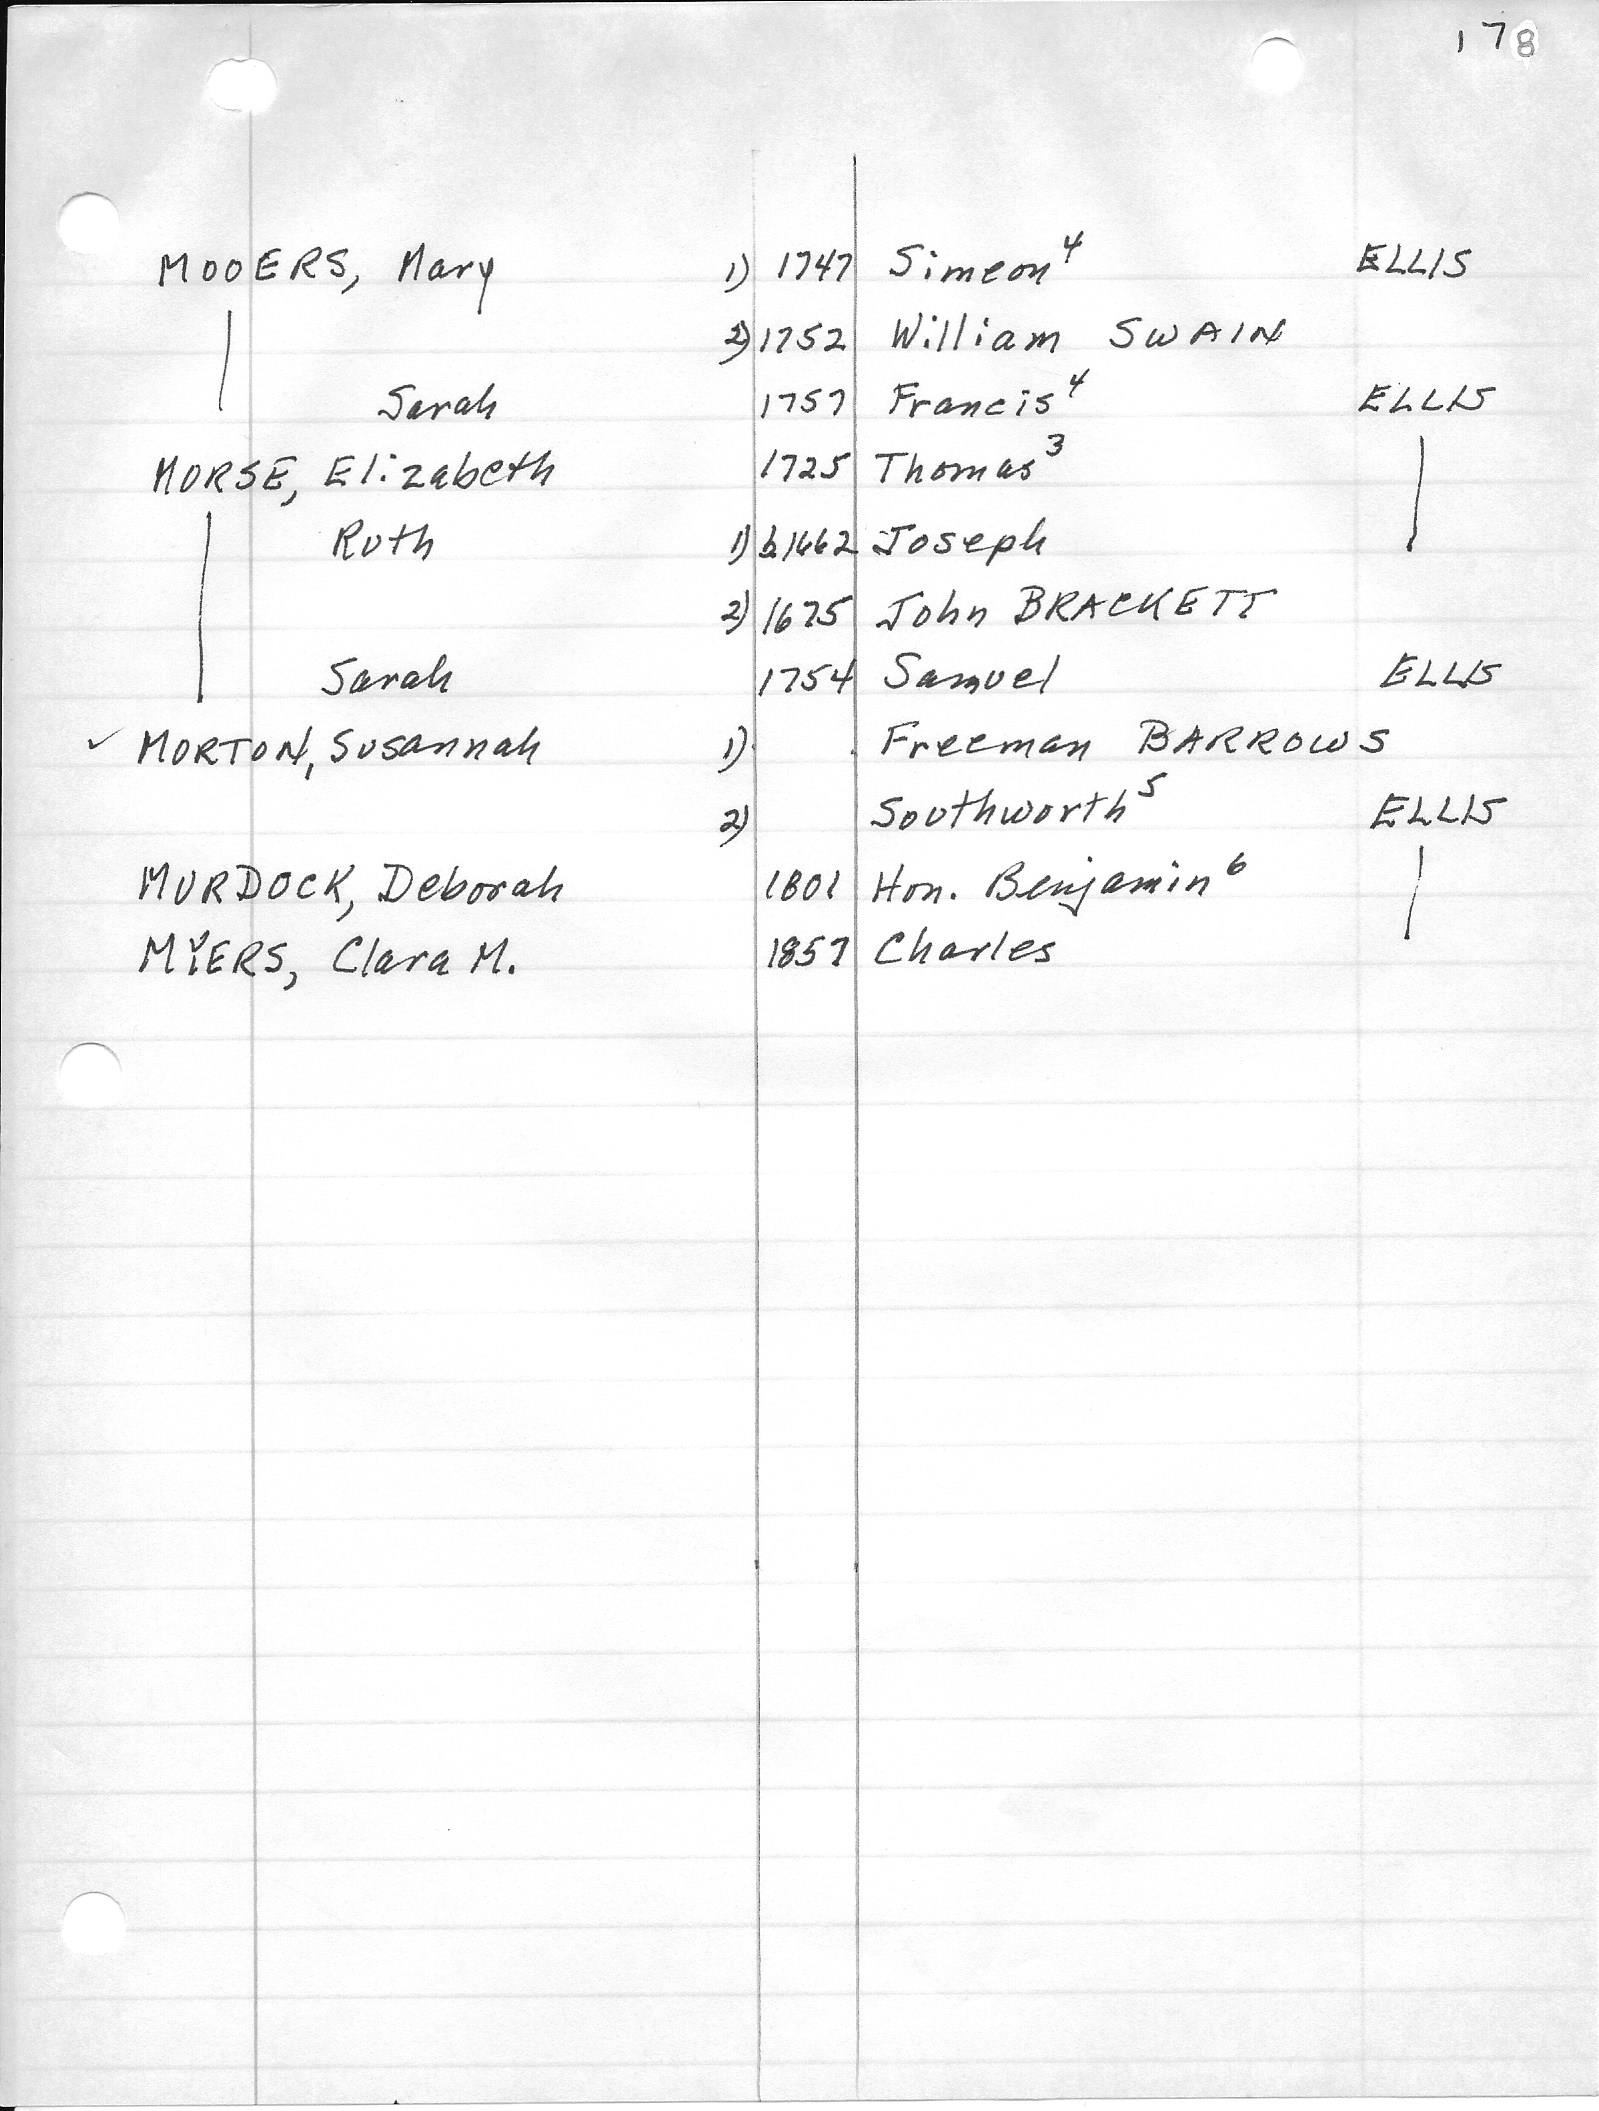 178
MOOERS, Mary 1) 1747 Simeon⁴ ELLIS
2) 1752 William SWAIN
Sarah 1757 Francis⁴ ELLIS
MORSE, Elizabeth 1725 Thomas³
Ruth 1) b1662 Joseph
2) 1675 John BRACKETT
Sarah 1754 Samuel ELLIS
✓ MORTON, Susannah 1) Freeman BARROWS
2) Southworth⁵ ELLIS
MURDOCK, Deborah 1801 Hon. Benjamin⁶
MYERS, Clara M. 1857 Charles